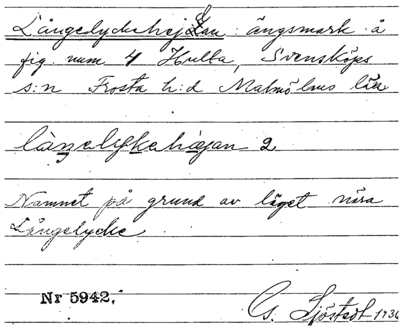 Långelyckehejdan: ängsmark å
fig. num 4 Hulta, Svensköps
s:n Frosta h:d Malmöhus län
làŋelykehæjan 2
Namnet på grund av läget nära
Långelycke
Nr 5942.
Cs. Sjöstedt 1936